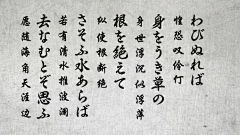 わびぬれば
惶恐叹伶仃
身をうき草の
身世浮沉似浮萍
根を絶えて
似使根断绝
さそふ水あらば
若有清水推波澜
去なむとぞ思ふ
愿随海角天涯边